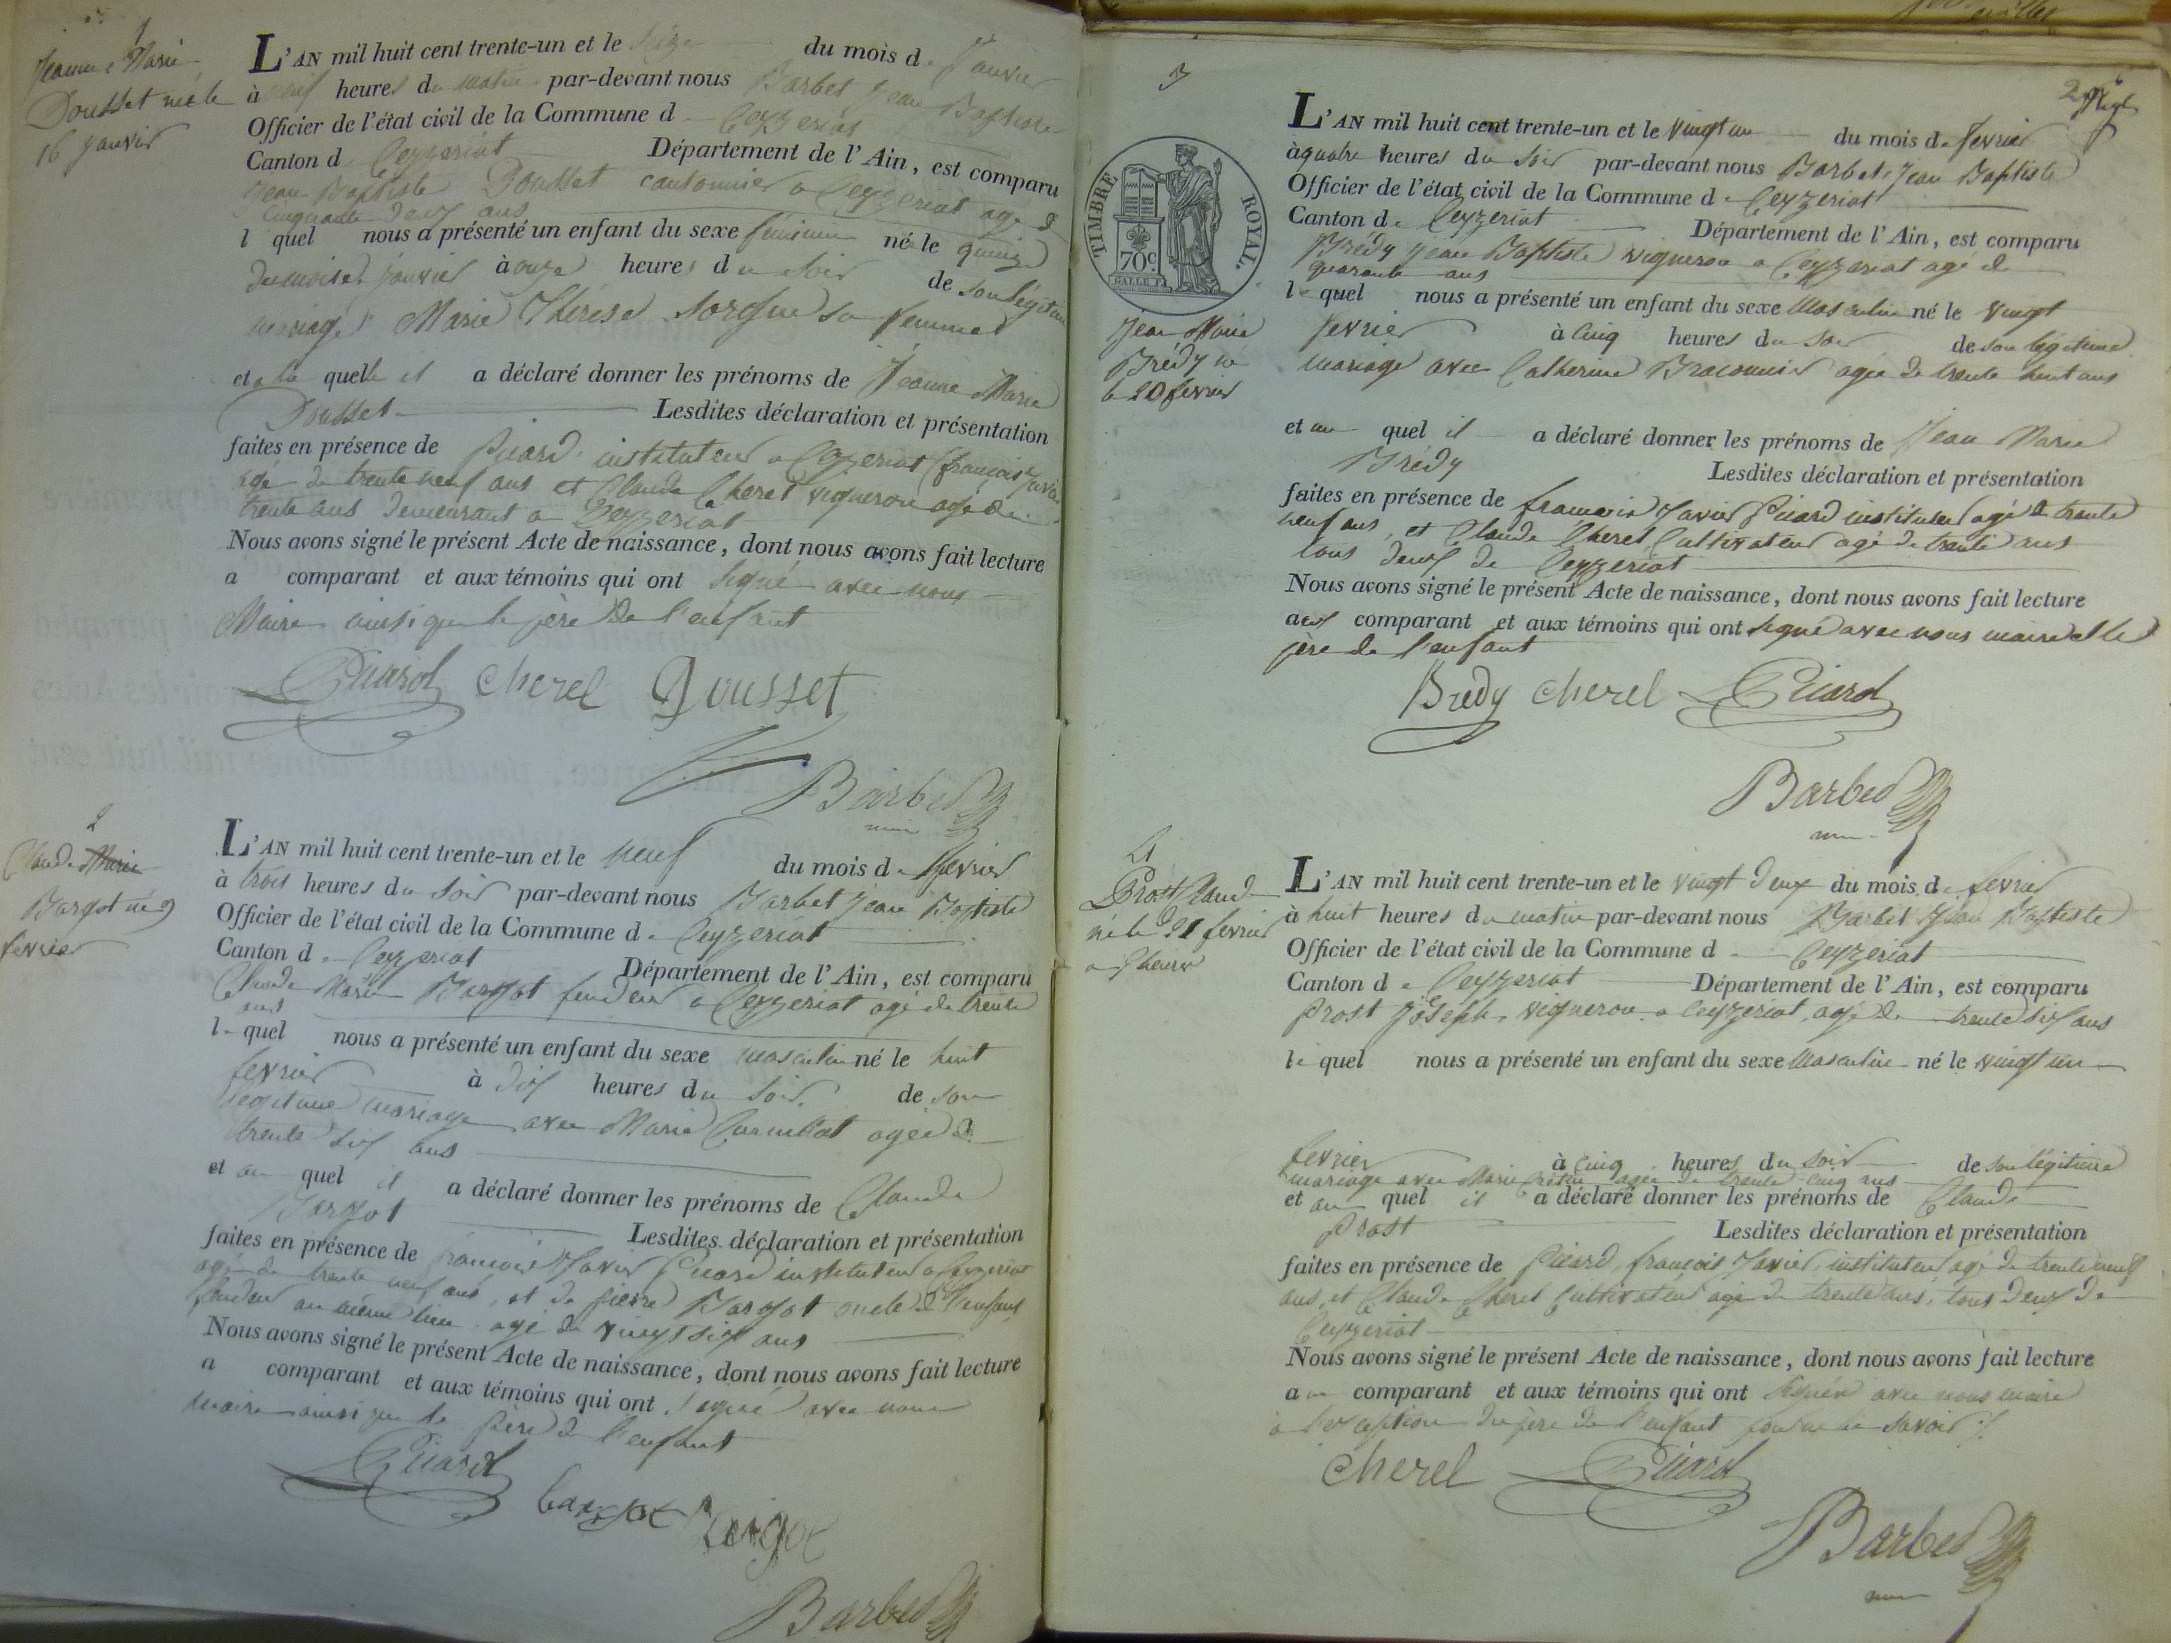 1
Jeanne Marie
Dousset née le
16 janvier
L'AN mil huit cent trente-un et le seize du mois de janvier
à neuf heures du matin par-devant nous Barbet Jean Baptiste
Officier de l'état civil de la Commune de Ceyzeriat
Canton de Ceyzeriat Département de l'Ain, est comparu
Jean Baptiste Dousset cantonnier a Ceyzeriat agé de
cinquante deux ans
l quel nous a présenté un enfant du sexe féminin né le quinze
du mois de janvier à onze heures du soir de son légitime
mariage Marie Thérèse sa femme
et a la quelle il a déclaré donner les prénoms de Jeanne Marie
Dousset Lesdites déclaration et présentation
faites en présence de Picard instituteur a Ceyzeriat (françois Xavier
agé de trente neuf ans et Claude Cherel vigneron agé de
trente ans demeurant a Ceyzeriat
Nous avons signé le présent Acte de naissance, dont nous avons fait lecture
a comparant et aux témoins qui ont signé avec nous
Maire ainsi que le père de l'enfant
Picard Cherel Dousset
Barbet
maire
2
Claude Marie
Bargot né 9
fevrier
L'AN mil huit cent trente-un et le neuf du mois de fevrier
à trois heures du soir par-devant nous Barbet Jean Baptiste
Officier de l'état civil de la Commune de Ceyzeriat
Canton de Ceyzeriat Département de l'Ain, est comparu
Claude Marie Bargot fendeur a Ceyzeriat agé de trente
ans
le quel nous a présenté un enfant du sexe masculin né le huit
fevrier à dix heures du soir de son
legitime mariage avec Marie agée de
trente six ans
et au quel il a déclaré donner les prénoms de Claude
Bargot Lesdites déclaration et présentation
faites en présence de françois Xavier Picard instituteur a Ceyzeriat
agé de trente neuf ans, et de pierre Bargot oncle de l'enfant
fendeur au même lieu agé de vingt six ans
Nous avons signé le présent Acte de naissance, dont nous avons fait lecture
a comparant et aux témoins qui ont signé avec nous
maire ainsi que le père de l'enfant
Picard bargot Bargot
Barbet
3
TIMBRE ROYAL.
70c
Jean Marie
Brédy né
le 20 fevrier
L'AN mil huit cent trente-un et le vingt un du mois de fevrier
à quatre heures du soir par-devant nous Barbet Jean Baptiste
Officier de l'état civil de la Commune de Ceyzeriat
Canton de Ceyzeriat Département de l'Ain, est comparu
Brédy Jean Baptiste vigneron a Ceyzeriat agé de
quarante ans
le quel nous a présenté un enfant du sexe Masculin né le vingt
fevrier à cinq heures du soir de son légitime
mariage avec Catherine Braconnier agée de trente huit ans
et au quel il a déclaré donner les prénoms de Jean Marie
Brédy Lesdites déclaration et présentation
faites en présence de francois Xavier Picard instituteur agé de trente
neuf ans, et Claude Cherel Cultivateur agé de trente ans
tous deux de Ceyzeriat
Nous avons signé le présent Acte de naissance, dont nous avons fait lecture
aux comparant et aux témoins qui ont signé avec nous maire et le
père de l'enfant
Bredy Cherel Picard
Barbet
maire
4
Prost Claude
né le 21 fevrier
L'AN mil huit cent trente-un et le vingt deux du mois de fevrier
à huit heures du matin par-devant nous Barbet Jean Baptiste
Officier de l'état civil de la Commune de Ceyzeriat
Canton de Ceyzeriat Département de l'Ain, est comparu
Prost Joseph, vigneron a Ceyzeriat, agé de trente six ans
le quel nous a présenté un enfant du sexe Masculin né le vingt un
fevrier à cinq heures du soir de son légitime
mariage avec Marie agée de trente cinq ans
et au quel il a déclaré donner les prénoms de Claude
Prost Lesdites déclaration et présentation
faites en présence de Picard, françois Xavier, instituteur agé de trente neuf
ans, et Claude Cherel Cultivateur agé de trente ans, tous deux de
Ceyzeriat
Nous avons signé le présent Acte de naissance, dont nous avons fait lecture
au comparant et aux témoins qui ont signé avec nous maire
a l'exception du père de l'enfant pour ne le savoir
Cherel Picard
Barbet
maire